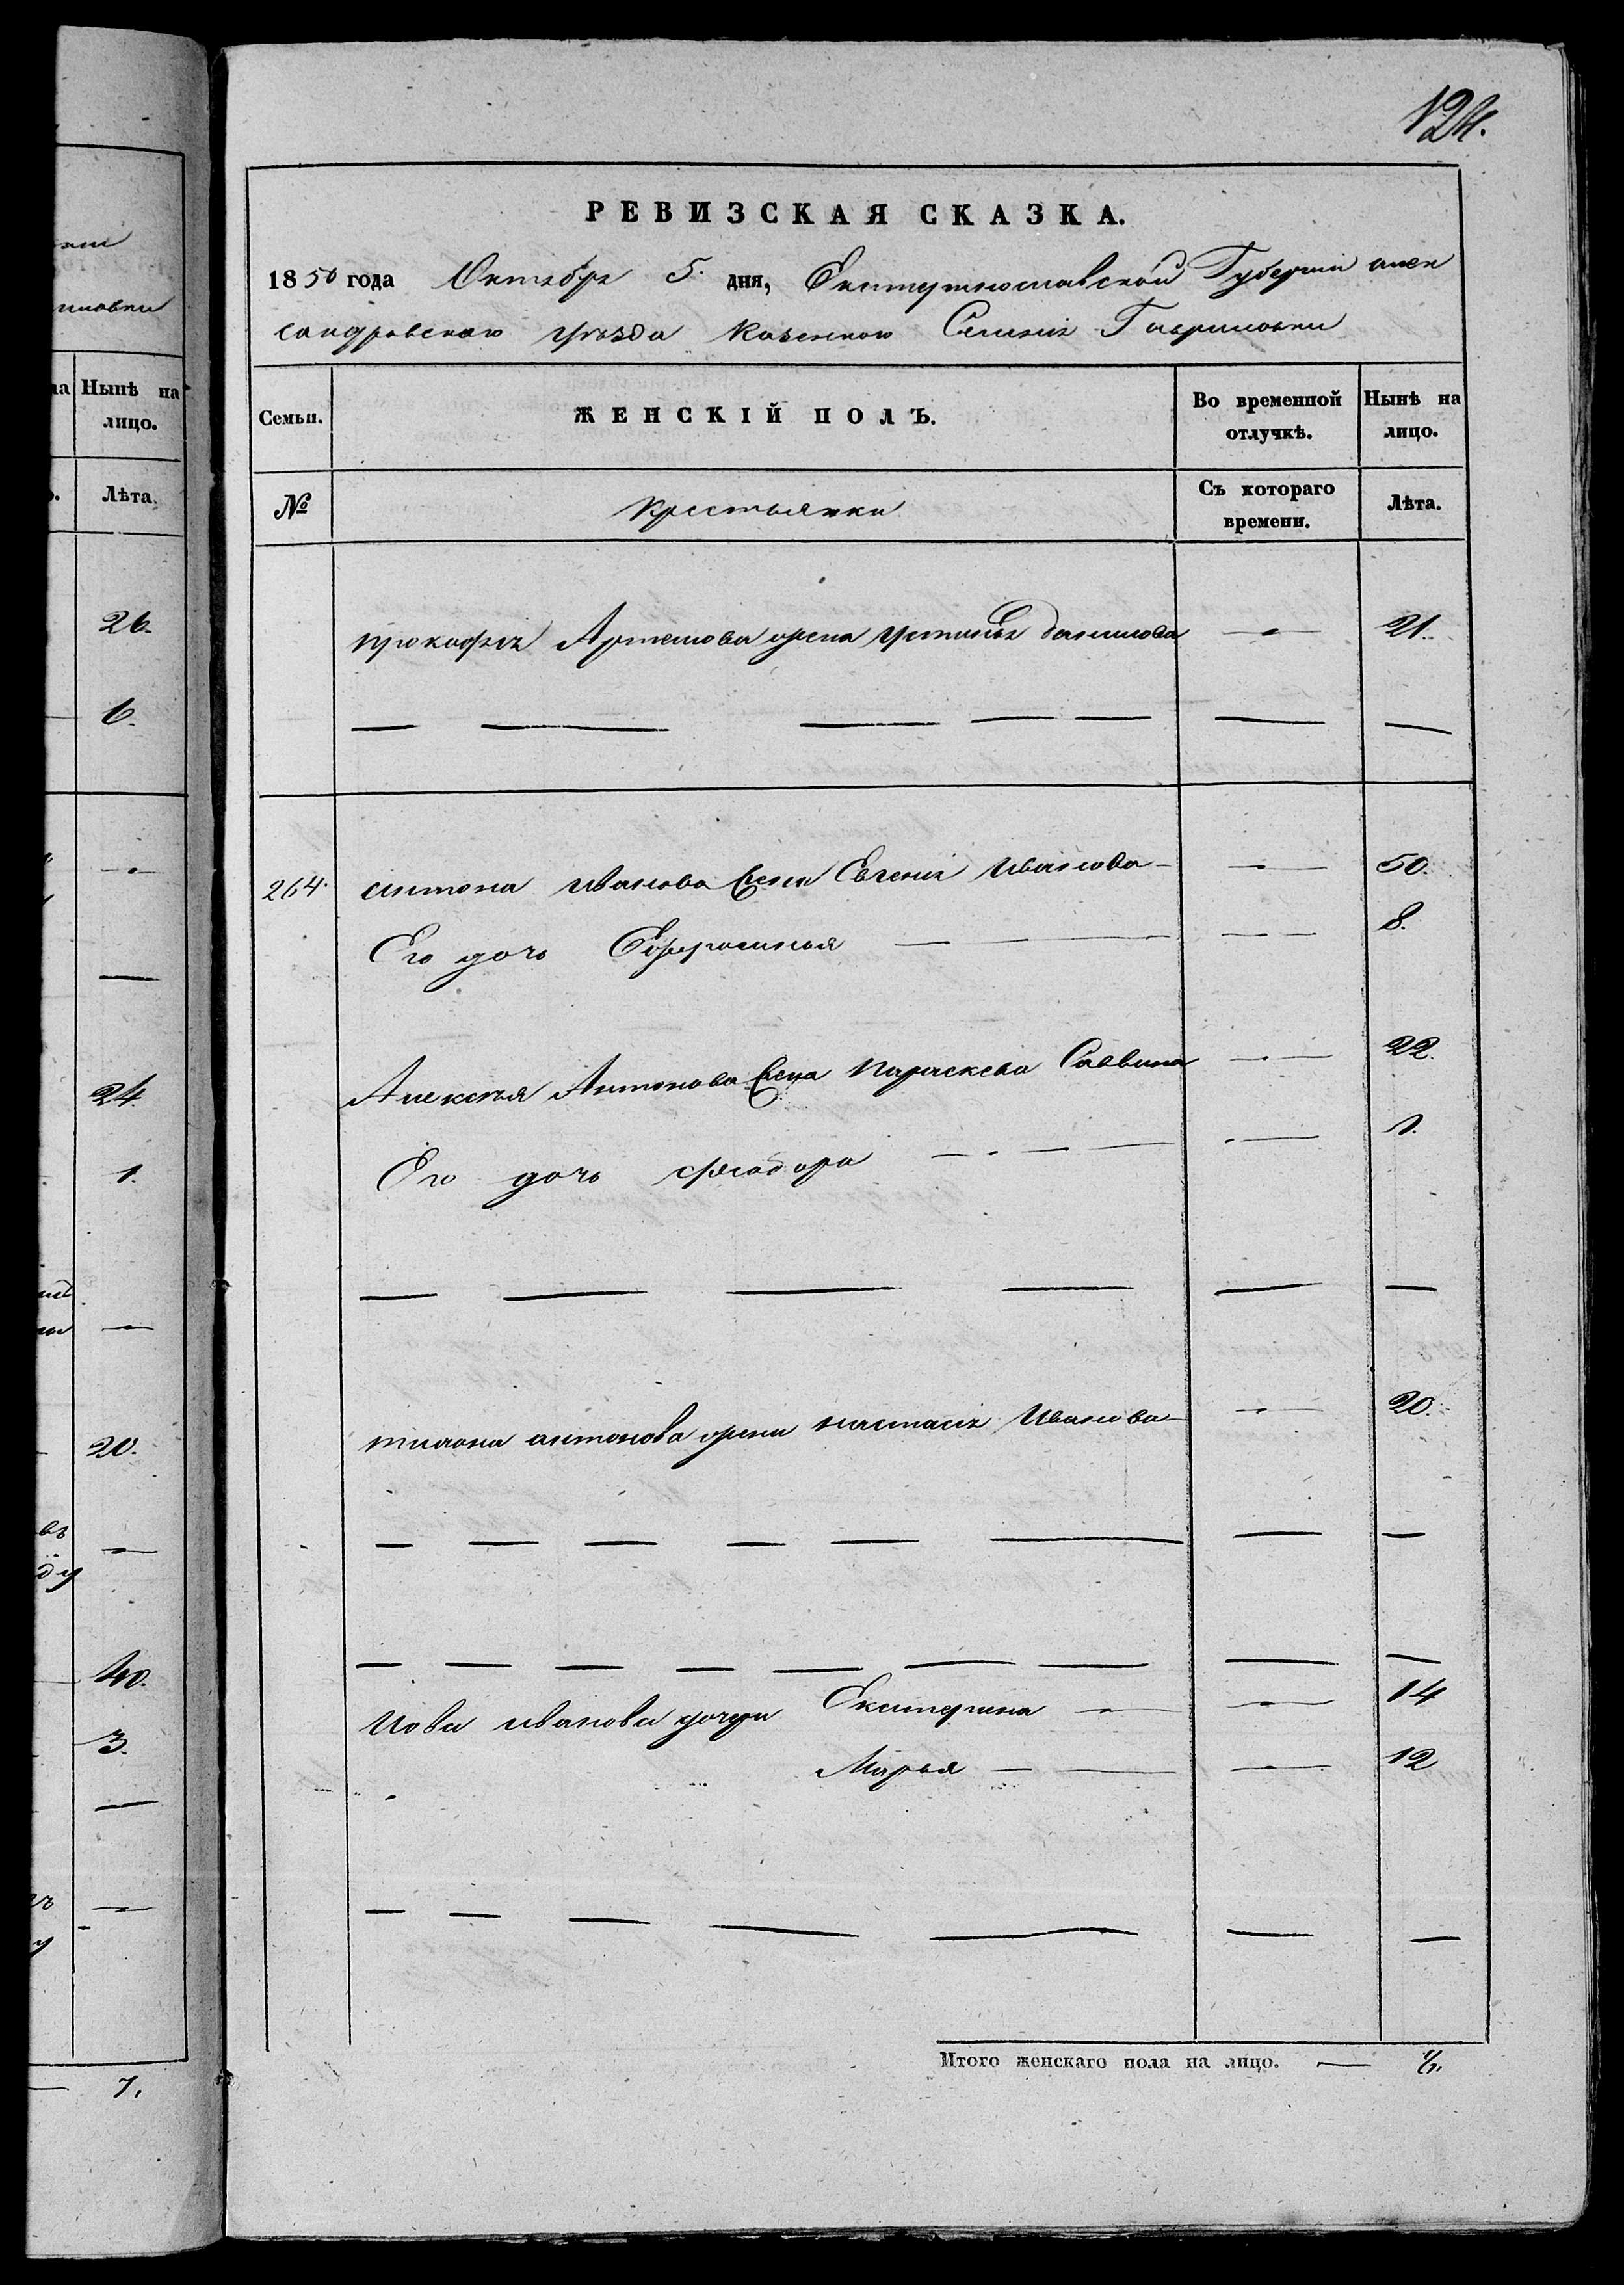 124.
РЕВИЗСКАЯ СКАЗКА.
1850 года Октября 5. дня, Екатеринославской Губернии алек
сандровскаго уѣзда Казенного Селения Гавриловки
Семьи.
ЖЕНСКІЙ ПОЛЪ.
Во временной отлучкѣ.
Нынѣ на лицо.
№
Крестьянки
Съ котораго времени.
Лѣта.
прокофія Артемова жена Устинья данилова — 21.
264. антона иванова жена Евгения Иванова — 50.
Его дочь Ефросинья — 8.
Алексѣя Антонова жена параскева Саввина — 22.
Его дочь феодора — 1.
антонова жена настасия Иванова — 20.
Иова иванова дочери Екатерина — 14
Марья — 12
Итого женскаго пола на лицо. —
Нынѣ на
лицо.
Лѣта.
26.
6.
24.
1.
20.
40.
3.
7.